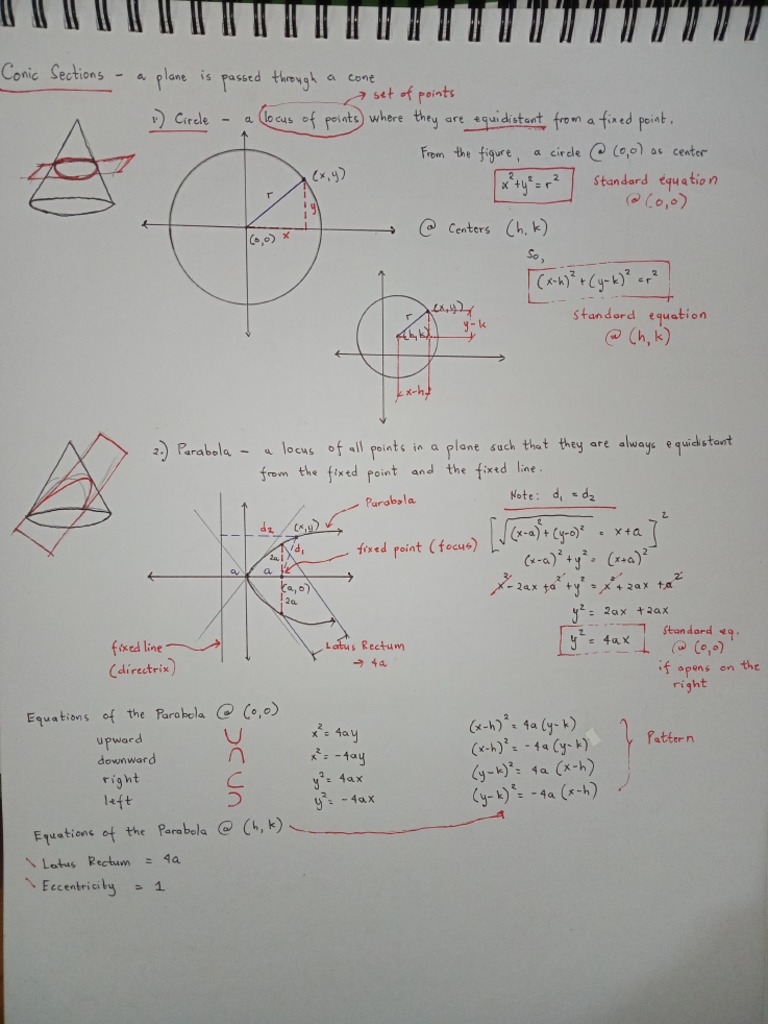 Conic Sections - a plane is passed through a cone
→ set of points
1.) Circle - a locus of points where they are equidistant from a fixed point.
From the figure, a circle @ (0,0) as center
(x,y)
r
y
(0,0) x
x² + y² = r²
Standard equation
@ (0,0)
@ Centers (h,k)
So,
(x-h)² + (y-k)² = r²
Standard equation
@ (h,k)
(x,y)
r
(h,k)
y-k
x-h
2.) Parabola - a locus of all points in a plane such that they are always equidistant
from the fixed point and the fixed line.
Parabola
d₂
(x,y)
d₁
2a
fixed point (focus)
a
a
(a,0)
2a
fixed line
(directrix)
Latus Rectum
→ 4a
Note: d₁ = d₂
[√(x-a)² + (y-0)² = x+a]²
(x-a)² + y² = (x+a)²
x² - 2ax + a² + y² = x² + 2ax + a²
y² = 2ax + 2ax
y² = 4ax
Standard eq.
@ (0,0)
if opens on the
right
Equations of the Parabola @ (0,0)
upward x² = 4ay (x-h)² = 4a(y-k)
downward x² = -4ay (x-h)² = -4a(y-k)
right y² = 4ax (y-k)² = 4a(x-h)
left y² = -4ax (y-k)² = -4a(x-h)
Pattern
Equations of the Parabola @ (h,k)
Latus Rectum = 4a
Eccentricity = 1